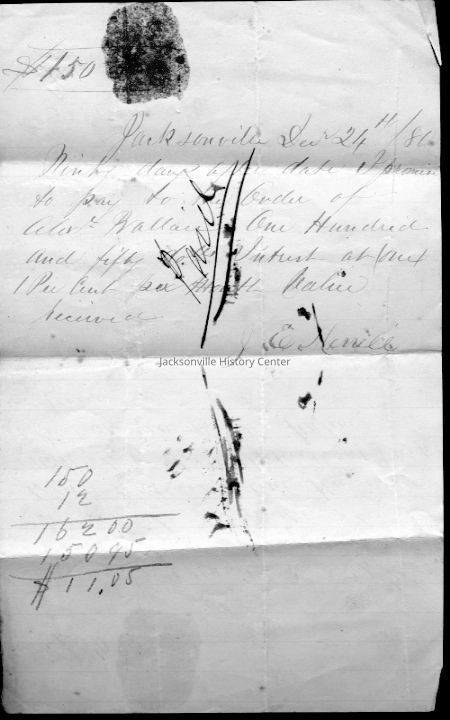 $150
Jacksonville Dec 24th/86
Ninty days after date I promis
to pay to the order of
Alexr. Wallace One Hundred
And fifty Intrest at (one)
1 Per Cent per Month Value
Received
J. E. Merrill
Paid
Jacksonville History Center
150
12
16200
15095
$11.05